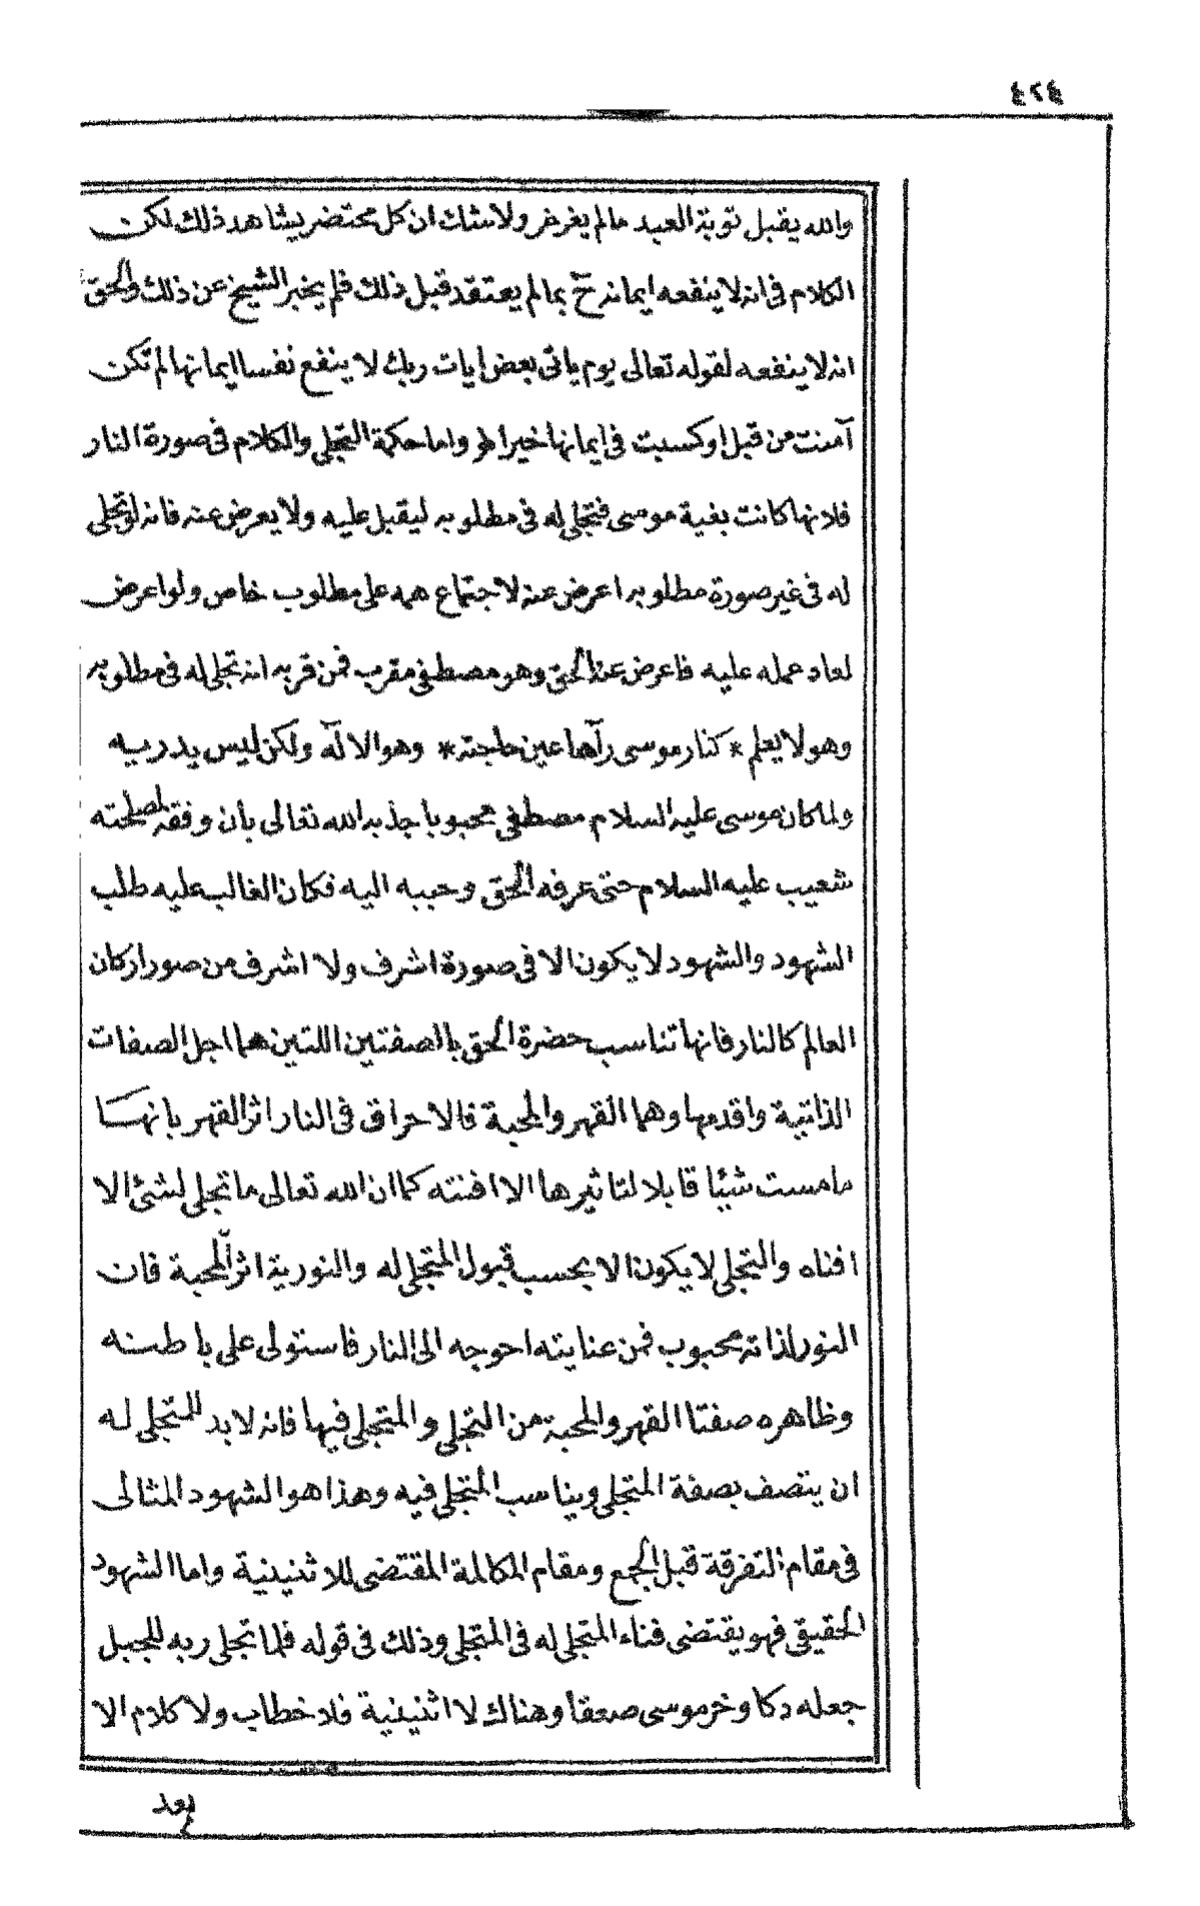 ٤٢٤
والله يقبل توبة العبد مالم يغرغر ولاشك ان كل محتضر يشاهد ذلك لكن
الكلام فى انه لا ينفعه ايمانه ح بمالم يعتقد قبل ذلك فلم يخبر الشيخ عن ذلك والحق
انه لا ينفعه لقوله تعالى يوم ياتى بعض ايات ربك لا ينفع نفسا ايمانها لم تكن
آمنت من قبل او كسبت فى ايمانها خيرا واما حكمة التجلى والكلام فى صورة النار
فلانها كانت بغية موسى فتجلى له فى مطلوبه ليقبل عليه ولا يعرض عنه فانه لو تجلى
له فى غير صورة مطلوبه اعرض عنه لاجتماع همه على مطلوب خاص ولو اعرض
لعاد عمله عليه فاعرض عنه الحق وهو مصطفى مقرب فمن قربه انه تجلى له فى مطلوبه
وهو لا يعلم * كنار موسى رآها عين حاجته * وهو الاله ولكن ليس يدريه
ولما كان موسى عليه السلام مصطفى محبوبا جذبه الله تعالى بان وفقه لمصلحته
شعيب عليه السلام حتى عرفه الحق وحببه اليه فكان الغالب عليه طلب
الشهود والشهود لا يكون الا فى صورة اشرف ولا اشرف من صور اركان
العالم كالنار فانها تناسب حضرة الحق بالصفتين اللتين هما اجل الصفات
الذاتية واقدمها وهما القهر والمحبة فالاحراق فى النار اثر القهر بانها
مامست شيئا قابلا لتاثيرها الا افنته كما ان الله تعالى ما تجلى لشئ الا
افناه والتجلى لا يكون الا بحسب قبول المتجلى له والنورية اثر المحبة فان
النور لذاته محبوب فمن عنايته احوجه الى النار فاستولى على باطنه
وظاهره صفتا القهر والمحبة من التجلى والمتجلى فيها فانه لابد للمتجلى له
ان يتصف بصفة المتجلى ويناسب المتجلى فيه وهذا هو الشهود المثالى
فى مقام التفرقة قبل الجمع ومقام المكالمة المقتضى للاثنينية واما الشهود
الحقيقى فهو يقتضى فناء المتجلى له فى المتجلى وذلك فى قوله فلما تجلى ربه للجبل
جعله دكا وخر موسى صعقا وهناك لا اثنينية فلا خطاب ولا كلام الا
بعد